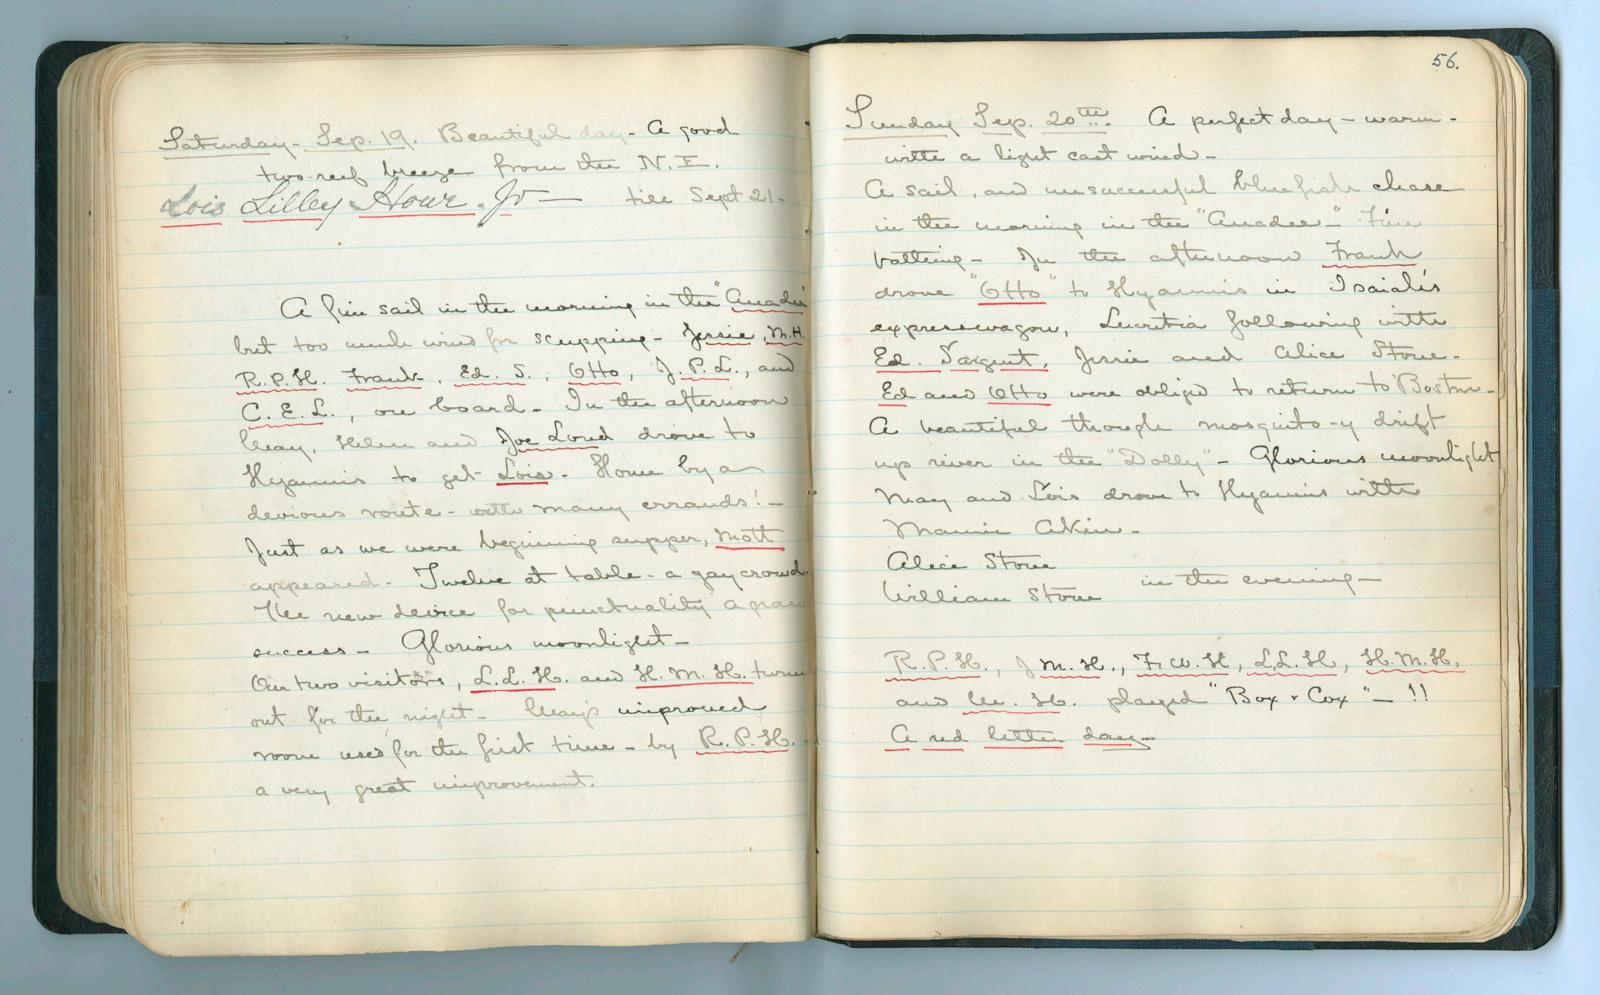 Saturday - Sep. 19. Beautiful day - A good
two-reef breeze from the N.E.
Lois Lilley Howe. Jr — till Sept 21 -
A fine sail in the morning in the "Anadee"
but too much wind for scupping - Jessie, M.H.
R.P.H. Frank, Ed. S., Otto, J.P.L., and
C.E.L., on board - In the afternoon
May, Helen and Joe Loud drove to
Hyannis to get Lois - Home by a
devious route - with many errands! -
Just as we were beginning supper, Mott
appeared - Twelve at table - a gay crowd.
The new device for punctuality a grand
success - Glorious moonlight -
Our two visitors, L.L.H. and H.M.H. turn
out for the night - May's improved
room used for the first time - by R.P.H. -
a very great improvement.
56.
Sunday Sep. 20th. A perfect day - warm -
with a light east wind -
A sail, and unsuccessful bluefish chase
in the morning in the "Anadee -" Fine
bathing - In the afternoon Frank
drove "Otto" to Hyannis in Isaiah's
expresswagon, Lucretia following with
Ed. Sargent, Jessie and Alice Stone -
Ed and Otto were obliged to return to Boston -
A beautiful though mosquito-y drift
up river in the "Dolly" - Glorious moonlight
May and Lois drove to Hyannis with
Mamie Akin -
Alice Stone
William Stone in the evening -
R.P.H., J.M.H., F.W.H, L.L.H, H.M.H.
and M.H. played "Box & Cox" - !!
A red letter day -